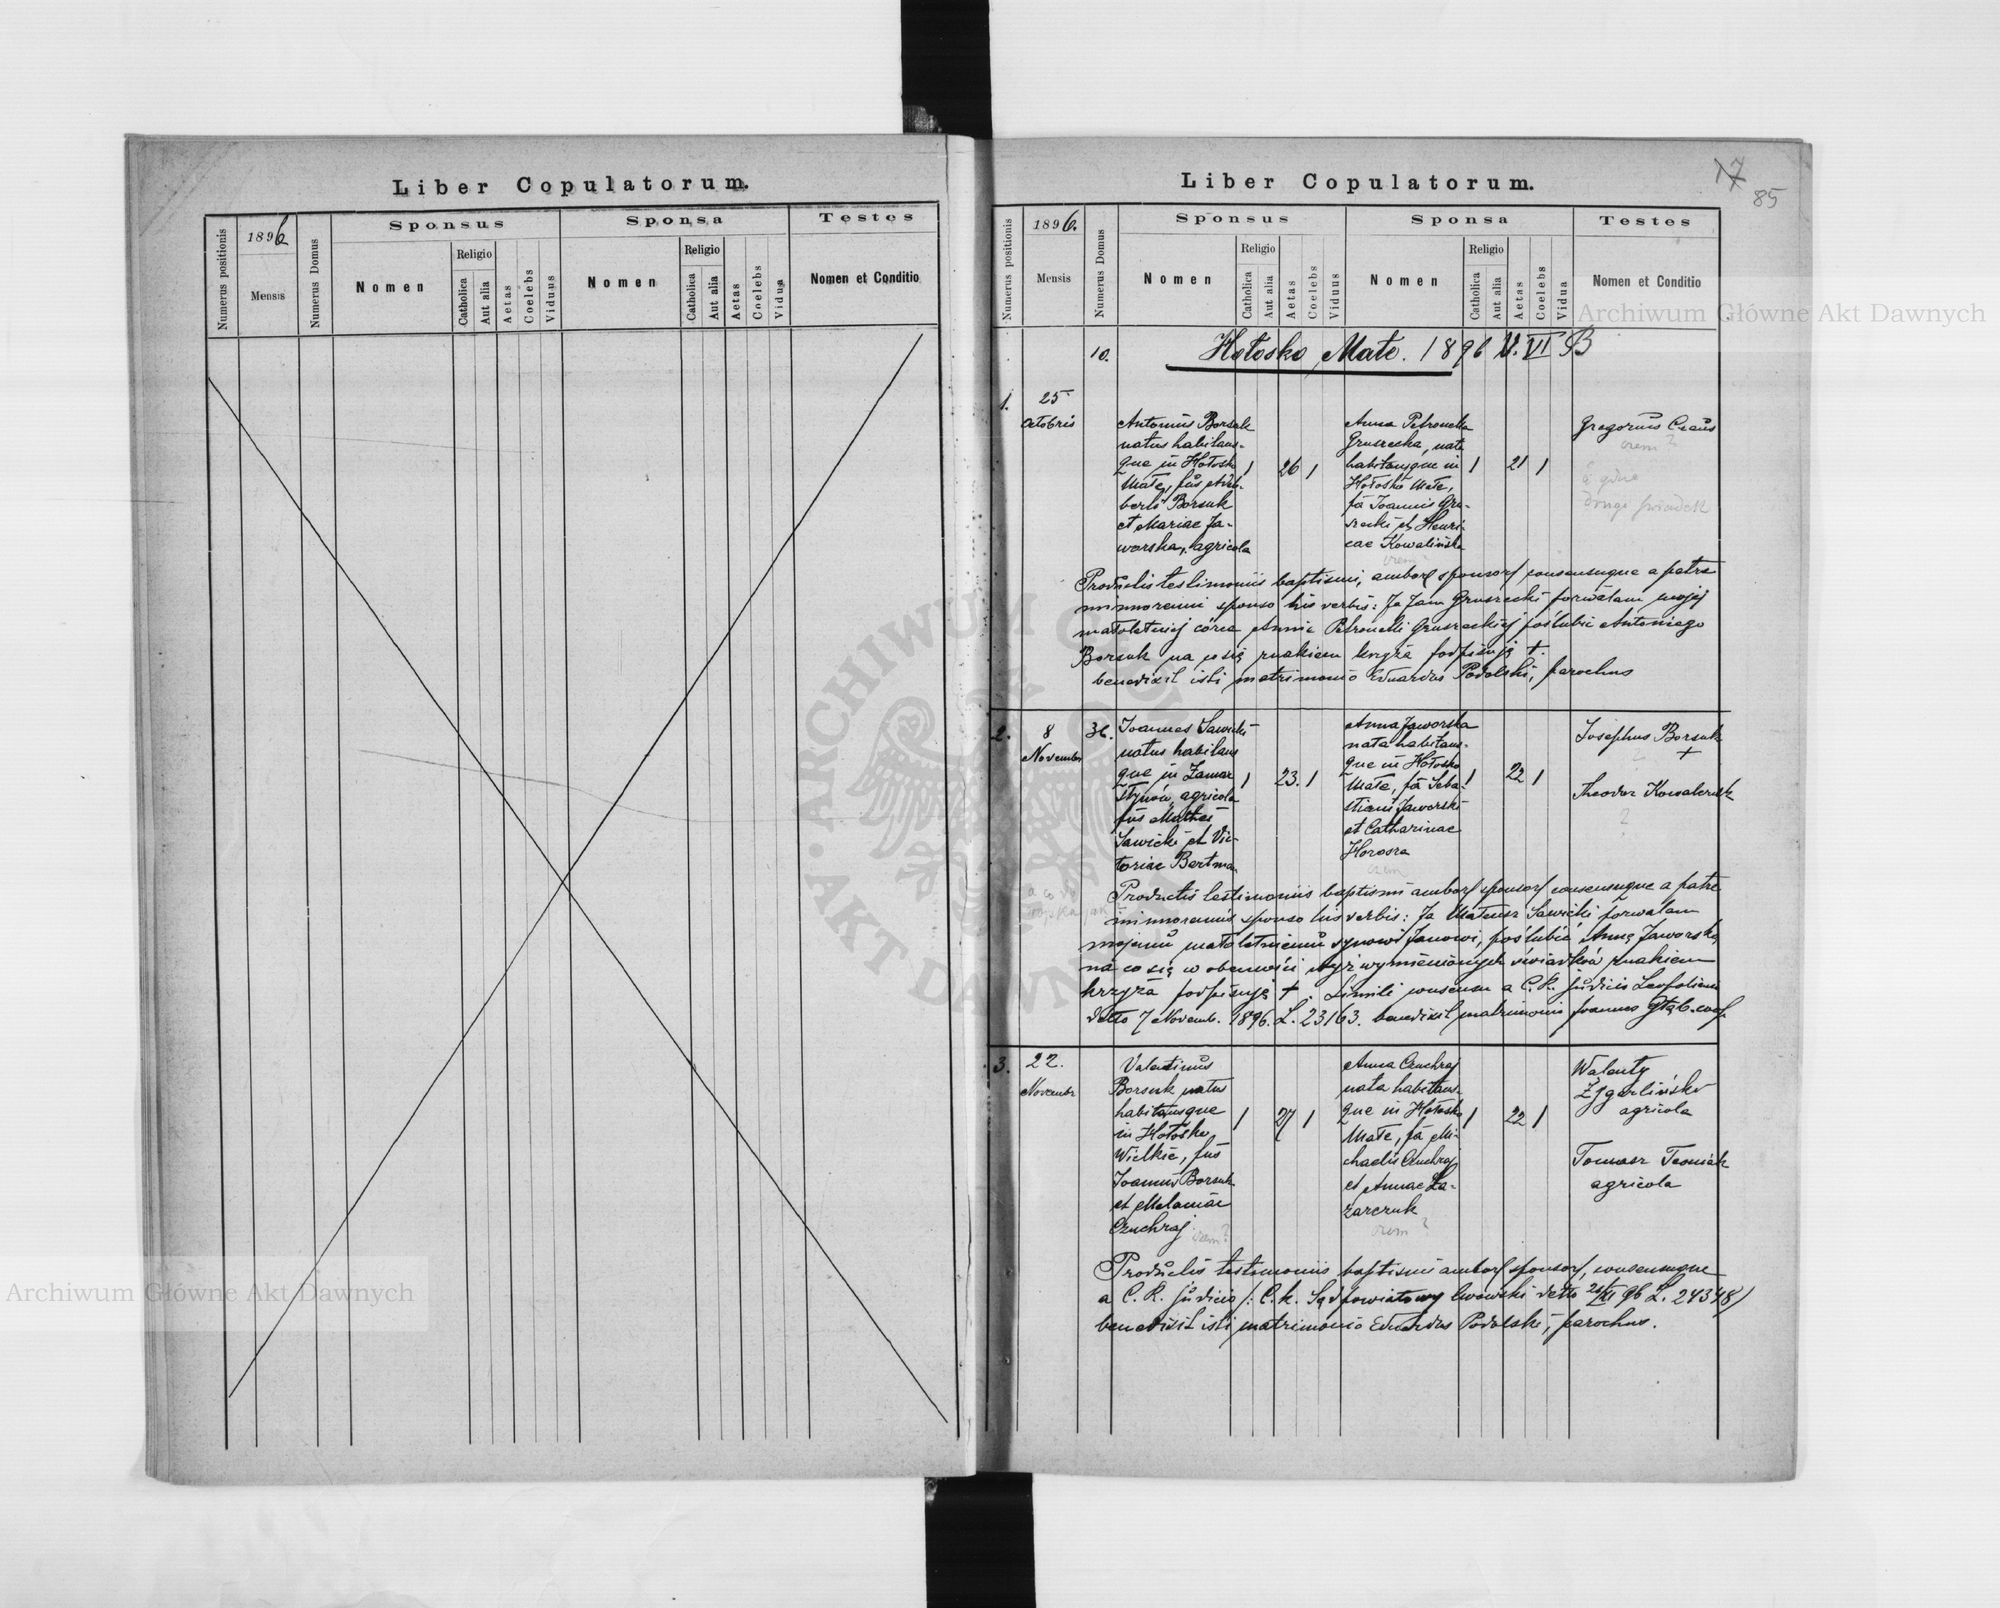 Liber Copulatorum.
Numerus positionis
1896
Mensis
Numerus Domus
Sponsus
Nomen
Religio
Catholica
Aut alia
Aetas
Coelebs
Viduus
Sponsa
Nomen
Religio
Catholica
Aut alia
Aetas
Coelebs
Vidua
Testes
Nomen et Conditio
Liber Copulatorum.
17
85
Numerus positionis
1896.
Mensis
Numerus Domus
Sponsus
Nomen
Religio
Catholica
Aut alia
Aetas
Coelebs
Viduus
Sponsa
Nomen
Religio
Catholica
Aut alia
Aetas
Coelebs
Vidua
Testes
Nomen et Conditio
10.
Hołosko Małe. 1896 U. VI B
1.
25
Octobris
Antonius Borsuk
natus habitans-
que in Hołosko
Małe, fus Adal-
berti Borsuk
et Mariae Ja-
worska, agricola
1
26
1
Anna Petronella
Gruszecka, nata
habitansque in
Hołosko Małe,
fa Joannis Gru-
szecki et Henri-
cae Kowalińska
1
21
1
Gregorius
czem?
a gdzie
drugi świadek
Productis testimoniis baptismi, ambor sponsor consensuque a patre
minorenni sponso his verbis: Ja Jan Gruszecki pozwalam mojej
małoletniej córce Annie Petronelli Gruszeckiej poślubić Antoniego
Borsuk na co się znakiem krzyża podpisuję +.
benedixit isti matrimonio Eduardus Podolski, parochus
2.
8
Novembr
36.
Joannes Sawicki
natus habitans
que in Zamar
stynów, agricola
fus Mathei
Sawicki et Vic-
toriae Bertman
1
23.
1
Anna Jaworska
nata habitans-
que in Hołosko
Małe, fa Seba-
stiani Jaworski
et Catharinae
Horosza
czem
1
22
1
Josephus Borsuk
+
Theodor Kowalczuk
?
Productis testimoniis baptismi ambor sponsor consensuque a patre
minorennis sponso his verbis: Ja Mateusz Sawicki pozwalam
mojemu małoletniemu synowi Janowi, poślubić Annę Jaworską
na co się w obecności wyż wymienionych świadków znakiem
krzyża podpisuję +. Simili consensu a C. k. judicio Leopoliens
detto 7 Novemb. 1896. L. 23163. benedixit matrimonio Joannes Głąb. coop.
3.
22.
Novembr
Valentinus
Borsuk natus
habitansque
in Hołosko
Wielkie, fus
Joannis Borsuk
et Melaniae
Czuchraj
czem?
1
27
1
Anna Czuchraj
nata habitans-
que in Hołosko
Małe, fa Mi-
chaelis Czuchraj
et Annae Ła-
zarczuk
czem?
1
22
1
Walenty
Zgarliński
agricola
Tomasz
agricola
Productis testimoniis baptismi ambor sponsor, consensuque
a C. R. judicio /: C. k. Sąd powiatowy lwowski detto 20/XI 96 L. 24348/
benedixit isti matrimonio Eduardus Podolski, parochus.
Archiwum Główne Akt Dawnych
Archiwum Główne Akt Dawnych